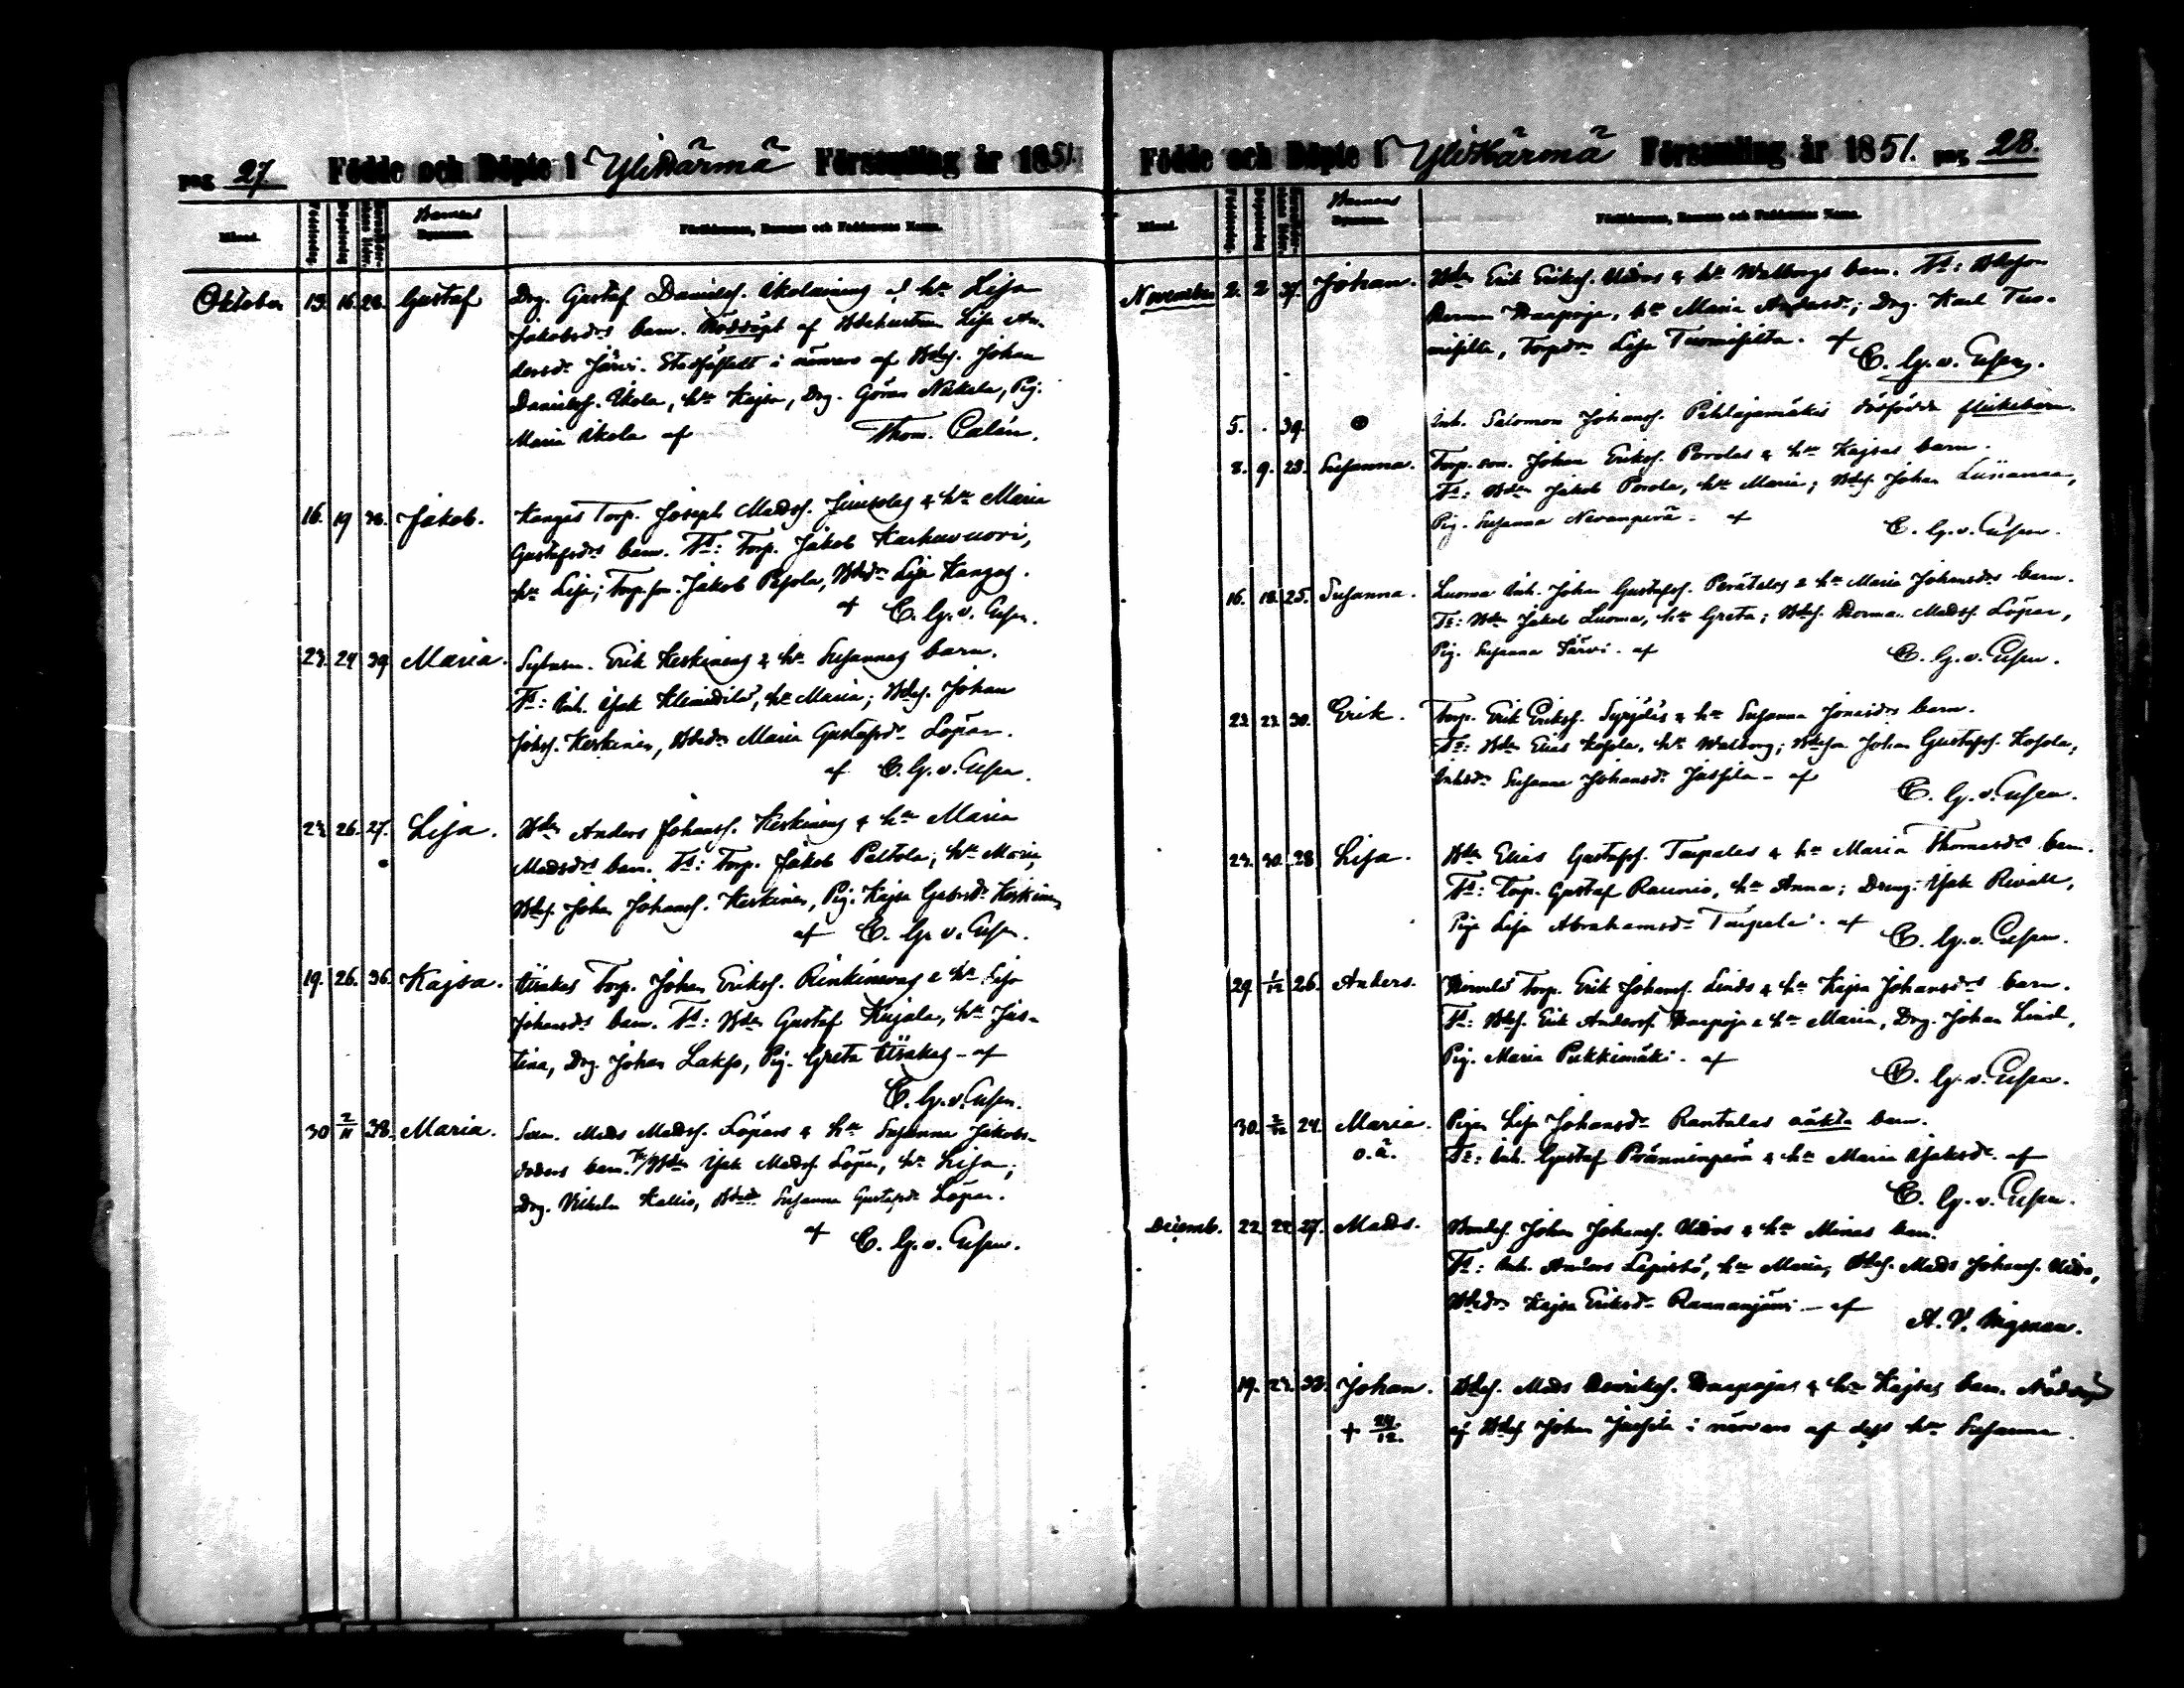 pag 27 Födde och Döpte i YliHärmä Församling år 1851.
Månad. Födelsedag. Döpelsedag. Barnens Dopnamn. Föräldrarnes, Barnens och Faddrarnes Namn.
Oktober 13. 16. 28. Gustaf Drg. Gustaf Danielss. Ekolas & hu Lisa
Jakobsdrs barn. Nöddöpt af Bdehustrun Lisa An-
dersdr Järvi. Stadfästadt i närvaro af Bdes. Johan
Danielss. Ekola, hu Kajsa, Drg. Göran Nickola, Pig.
Maria Ekola af Thom. Calén.
16. 19 38. Jakob. Kangas Torp. Joseph Madss. & hu Maria
Gustafsdrs barn. Ts: Torp. Jakob Karhuvuori,
hu Lisa; Torp.son. Jakob Pesola, Bdedr Lisa Kangas.
af C. G. v. Essen.
23. 24 39 Maria. Erik Keskinens & hu Susannas barn.
Ts: Inh. Isak hu Maria; Bdes. Johan
Johss. Keskinen, Bdedr Maria Gustafsdr Löpar.
af C. G. v. Essen.
24. 26. 27. Lisa. Bdn Anders Johanss. Keskinens & hu Maria
Madsdrs barn. Ts: Torp. Jakob Paltola, hu Maria,
Bdes. Johan Johanss. Keskinen, Pig. Kajsa Gabrsdr Keskinen
af C. G. v. Essen.
19. 26. 36. Kajsa. Torp. Johan Erikss. Rinkinevas & hu Lisa
Johansdrs barn. Ts: Bdn Gustaf Kujala, hu Jus-
tina, Drg. Johan Lakso, Pig. Greta af
C. G. v. Essen.
30 2/11 38. Maria. Mads Madss. Löpars & hu Susanna Jakobs-
doters barn. Ts/Bdn Isak Madss. Löpar, hu Lisa;
Drg. Vilhelm Kallio, Bdedr Susanna Gustafsdr Löpar.
af C. G. v. Essen.
Födde och Döpte i YliHärmä Församling år 1851. pag 28.
Månad. Födelsedag. Döpelsedag. Barnens Dopnamn. Föräldrarnes, Barnens och Faddrarnes Namn.
November 2. 2 37. Johan. Bdn Erik Erikss. & hu Walborgs barn. Ts: Bdeson
Herman Haapoja, hu Maria Andersdr; Drg. Karl Tuo-
misilta, Torpdr Lisa Tuomisilta. af
C. G. v. Essen.
5. . 39. Inh. Salomon Johanss. Pihlajamäkis dödfödda flickebarn.
8. 9. 23. Susanna. Torp. son. Johan Erikss. Porolas & hu Kajsas barn.
Ts: Bdn Jakob Porola, hu Maria; Bdes. Johan
Pig. Susanna Nevanperä. af C. G. v. Essen.
16. 18. 25. Susanna. Luoma Inh. Johan Gustafss. Perätalos & hu Maria Johansdrs barn.
Ts: Bdn Jakob Luoma, hu Greta; Bdes. Herman Madss. Löpar,
Pig. Susanna Järvi. af C. G. v. Essen.
23. 23. 30. Erik. Torp. Erik Erikss. Syrjäläs & hu Susanna Jonasdrs barn.
Ts: Bdn Elias Kosola, hu Walborg; Bdeson Johan Gustafss. Kosola,
Inhdr Susanna Johansdr Jussila. af
C. G. v. Essen.
24. 30. 28 Lisa. Bdn Elias Gustafss. Taipales & hu Maria Thomasdrs barn.
Ts: Torp. Gustaf Raunio, hu Anna; Dreng. Isak
Pig. Lisa Abrahamsdr Taipale. af C. G. v. Essen.
29 1/12 26. Anders. Torp. Erik Johanss. Linds & hu Kajsa Johansdrs barn.
Ts: Bdes. Erik Anderss. Haapoja & hu Maria, Drg. Johan Lind,
Pig. Maria Pukkimäki. af
C. G. v. Essen.
30. 2/12 24. Maria. Pigan Lisa Johansdr Rantalas oäkta barn.
o.ä. Ts: Inh. Gustaf & hu Maria Isaksdr. af
C. G. v. Essen.
Decemb. 22. 22. 27. Mads. Bondes. Johan Johanss. & hu Minas barn.
Ts: Inh. Anders Lepistö, hu Maria, Bdes. Mads Johanss.
Bdedr Kajsa Eriksdr Rannanjärvi. af
A. V. Ingman.
19. 24. 33. Johan. Bdes. Mads Henrikss. Haapojas & hu Kajsas barn. Nöddöpt
+ 24/12. af Bdes Johan Jussila i närvaro af dess hu Susanna.